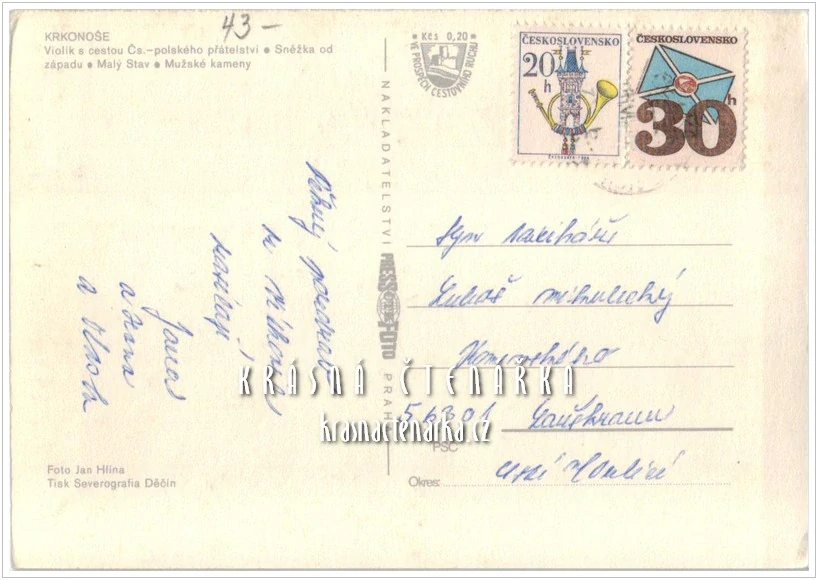 43-
KRKONOŠE
Violík s cestou Čs.-polského přátelství • Sněžka od
západu • Malý Stav • Mužské kameny
• Kčs 0,20 •
VE PROSPĚCH CESTOVNÍHO RUCHU
ČESKOSLOVENSKO
20 h
ČESKOSLOVENSKO
30 h
NAKLADATELSTVÍ PRESSFOTO PRAHA
Pěkný pozdrav
z
a
a Vlasta
Lukáš Mikulecký
56301 Lanškroun
PSČ
Okres: Ústí n Orlicí
Foto Jan Hlína
Tisk Severografia Děčín
KRÁSNÁ ČTENÁRKA
krasnactenarka.cz